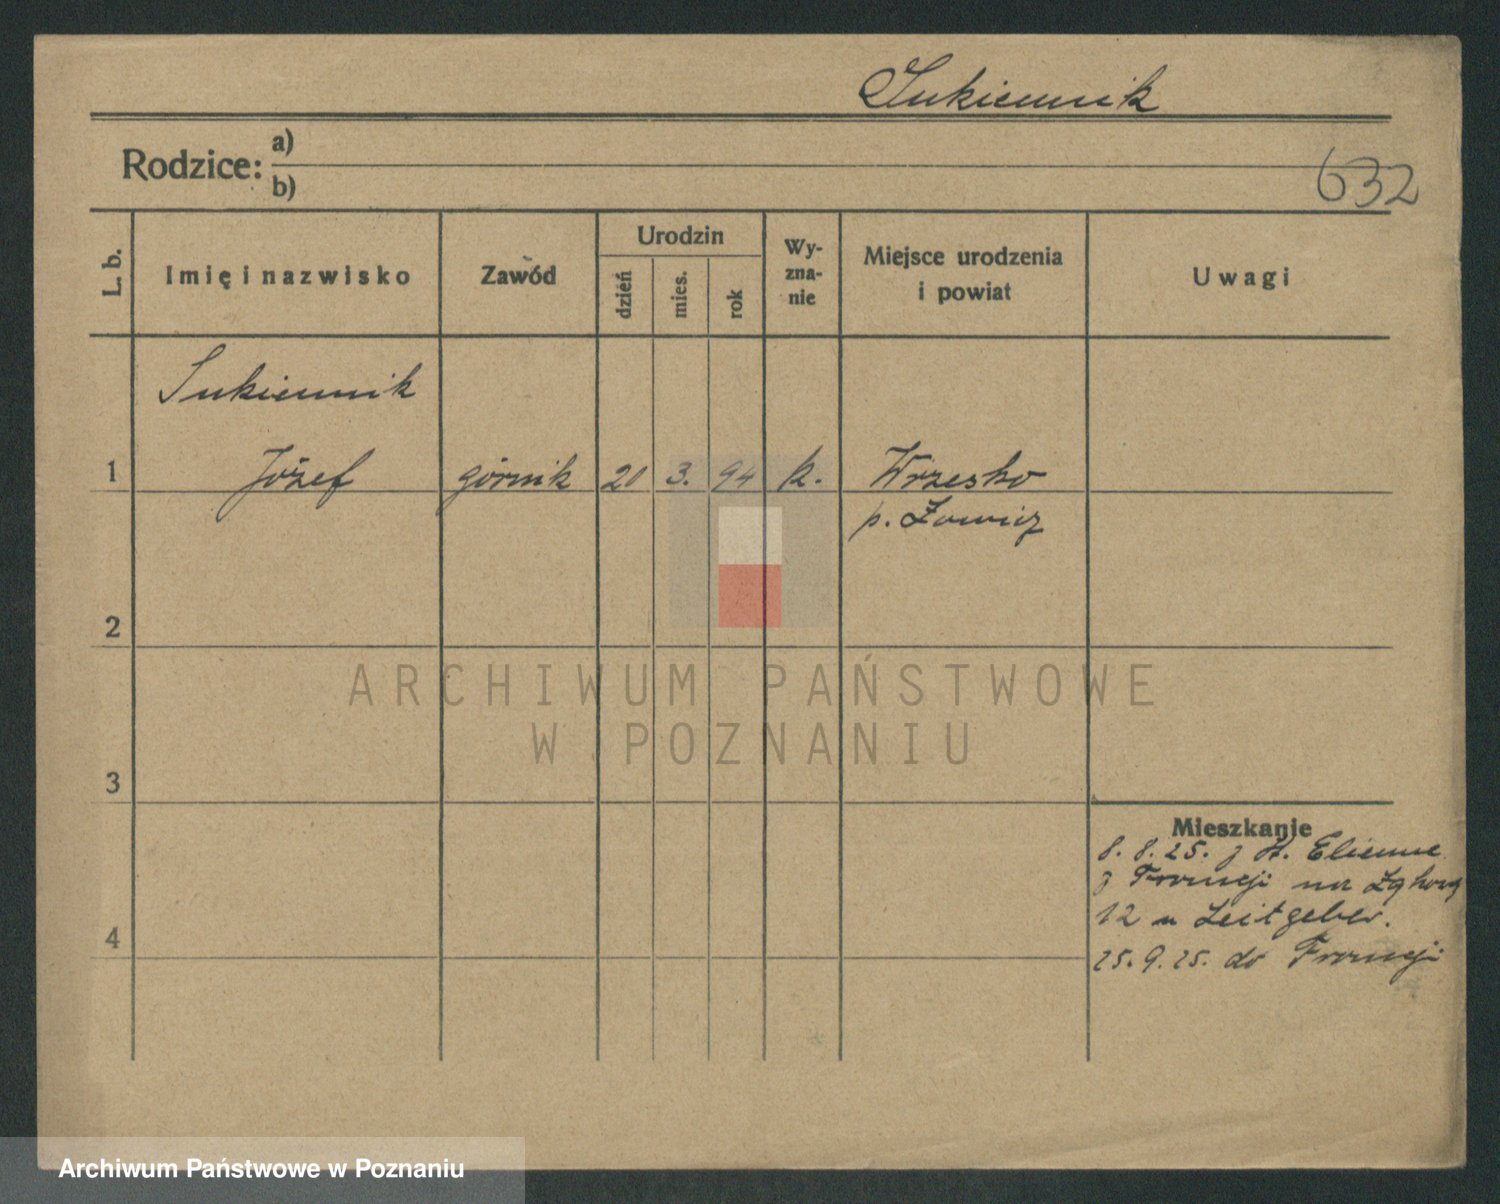 Sukiennik
Rodzice: a)
b)
632
L. b.
Imię i nazwisko
Zawód
Urodzin
dzień
mies.
rok
Wy-
zna-
nie
Miejsce urodzenia
i powiat
Uwagi
Sukiennik
1 Józef górnik 20 3. 94 k. Wrzesko
p.
2
3
4
ARCHIWUM PAŃSTWOWE
W POZNANIU
Mieszkanie
8. 8. 25. z St. Etienne
z Francji na
12 u Leitgeber.
25. 9. 25. do Francji
Archiwum Państwowe w Poznaniu